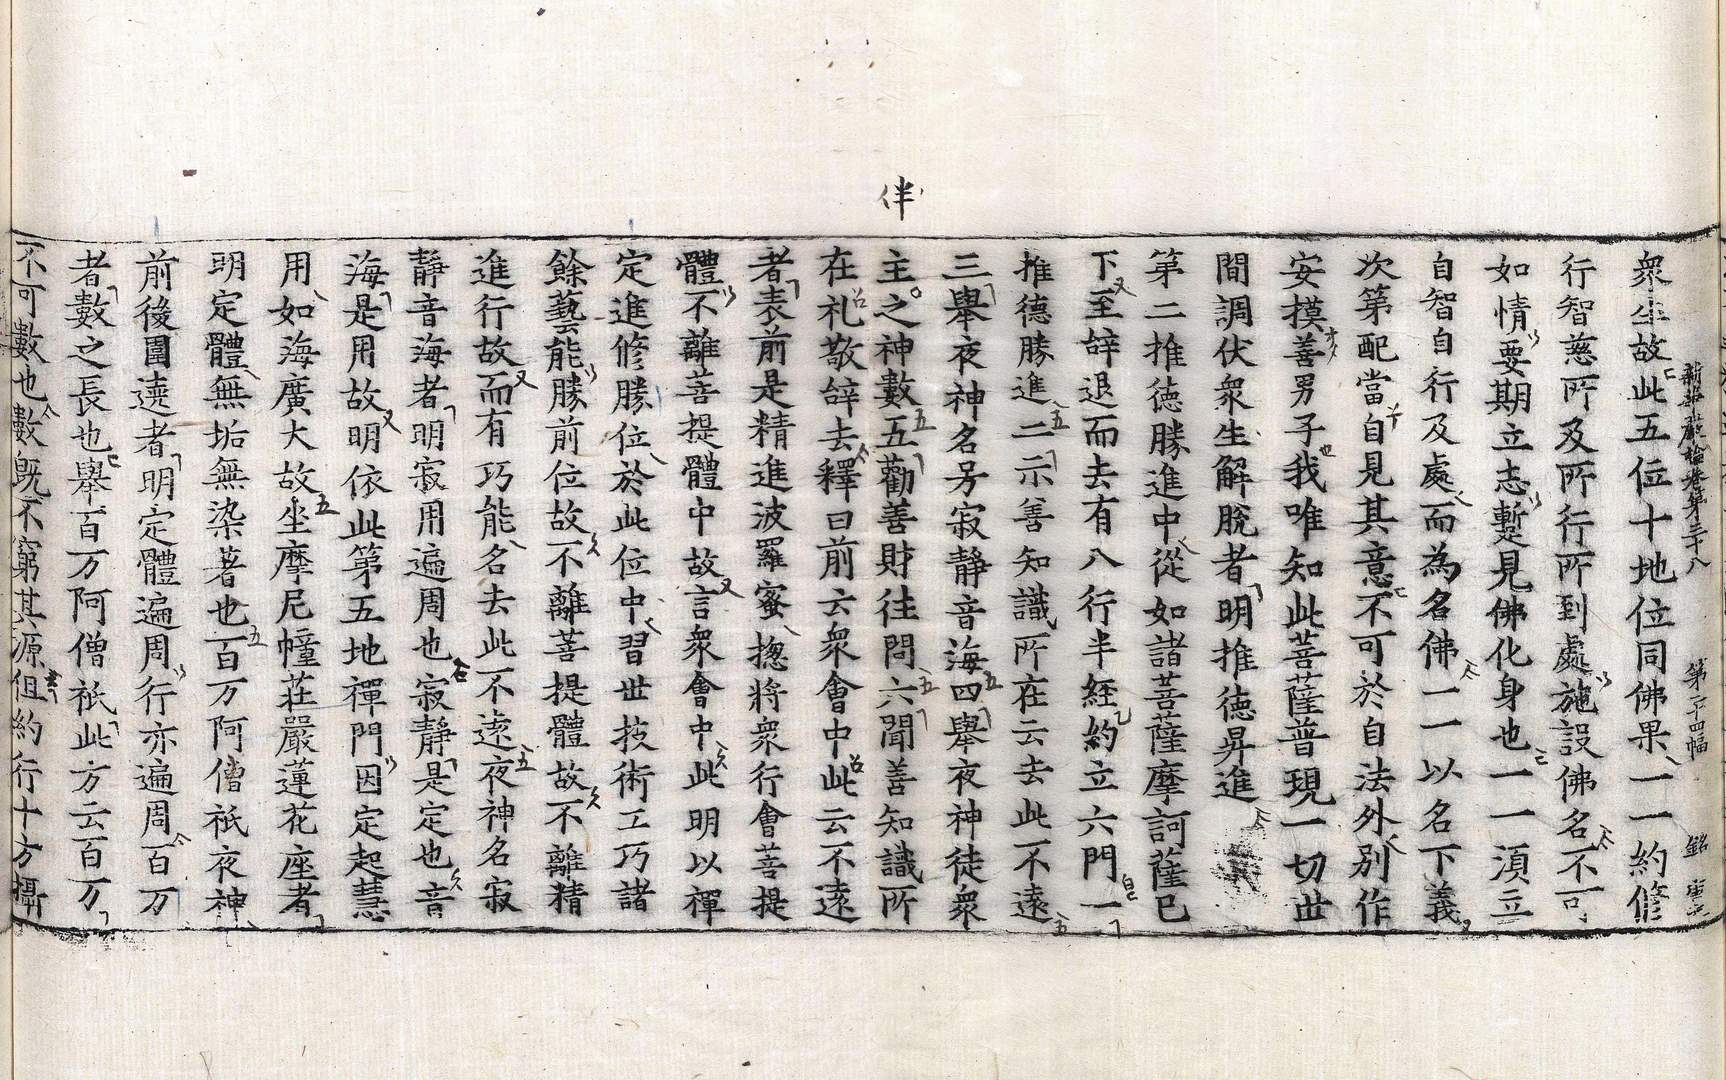 伴
新華嚴論卷第三十八　第二十四幅　銘
衆生故此五位十地位同佛果一一約修
行智慈所及所行所到處施設佛名不可
如情要期立志蹔見佛化身也一一須立
自智自行及處而為名佛一一以名下義
次第配當自見其意不可於自法外別作
安摸善男子我唯知此菩薩普現一切世
間調伏衆生解脫者明推德昇進
第二推德勝進中從如諸菩薩摩訶薩已
下至辝退而去有八行半経約立六門一
推德勝進二示善知識所在云去此不遠
三舉夜神名号寂靜音海四舉夜神徒衆
主之神數五勸善財往問六聞善知識所
在礼敬辝去釋曰前云衆會中此云不遠
者表前是精進波羅蜜揔將衆行會菩提
體不離菩提體中故言衆會中此明以禪
定進修勝位於此位中習世技術工巧諸
餘藝能勝前位故不離菩提體故不離精
進行故而有巧能名去此不遠夜神名寂
靜音海者明寂用遍周也寂靜是定也音
海是用故明依此第五地禪門因定起慧
用如海廣大故坐摩尼幢莊嚴蓮花座者
明定體無垢無染著也百万阿僧祇夜神
前後圍遶者明定體遍周行亦遍周百万
者數之長也舉百万阿僧祇此方云百万
不可數也數既不窮其源但約行十方攝